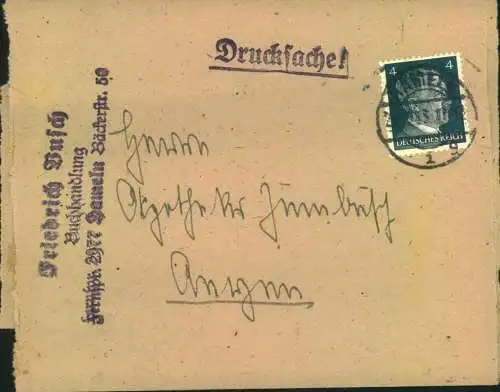 Drucksache!
4 4
DEUTSCHES REICH
Friedrich Busch
Buchhandlung
Fernspr. 2977 Hameln Bäckerstr. 50
Herrn
Apotheker Zumbusch